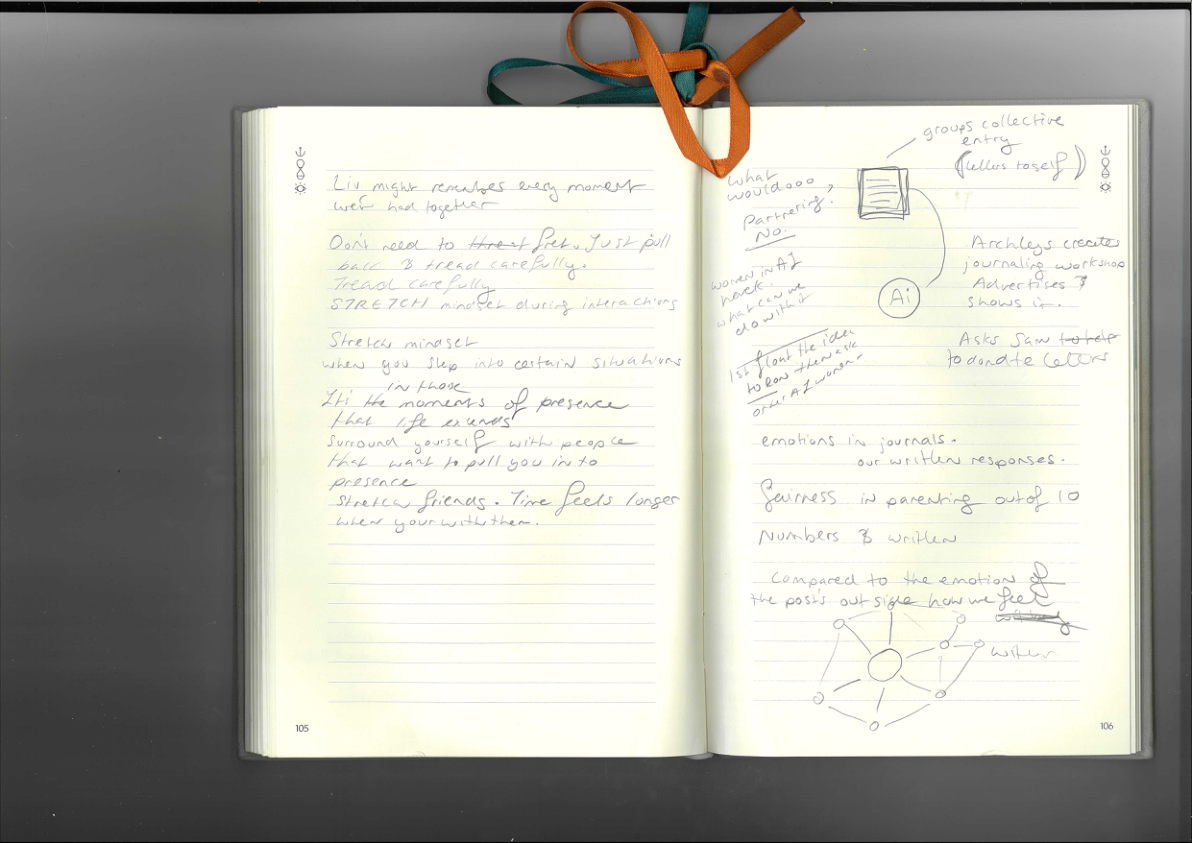 Liv might remember every moment
we've had together
Don't need to threat fret. Just pull
back & tread carefully.
Tread carefully
STRETCH mindset during interactions
Stretch mindset
when you step into certain situations
in those
It's the moments of presence
that life extends
Surround yourself with people
that want to pull you in to
presence
Stretch friends. Time feels longer
when your with them.
105
groups collective
entry
(letters to self)
what
would
Partnering?
No.
women in AI
what can we
do with it
1st float the idea
to then ask
other AI women
Ai
Archleys creates
journaling workshop
Advertises &
shows it.
Asks Sam to help
to donate letters
emotions in journals.
our written responses.
fairness in parenting out of 10
Numbers & written
Compared to the emotion of
the posts outside how we feel
written
106